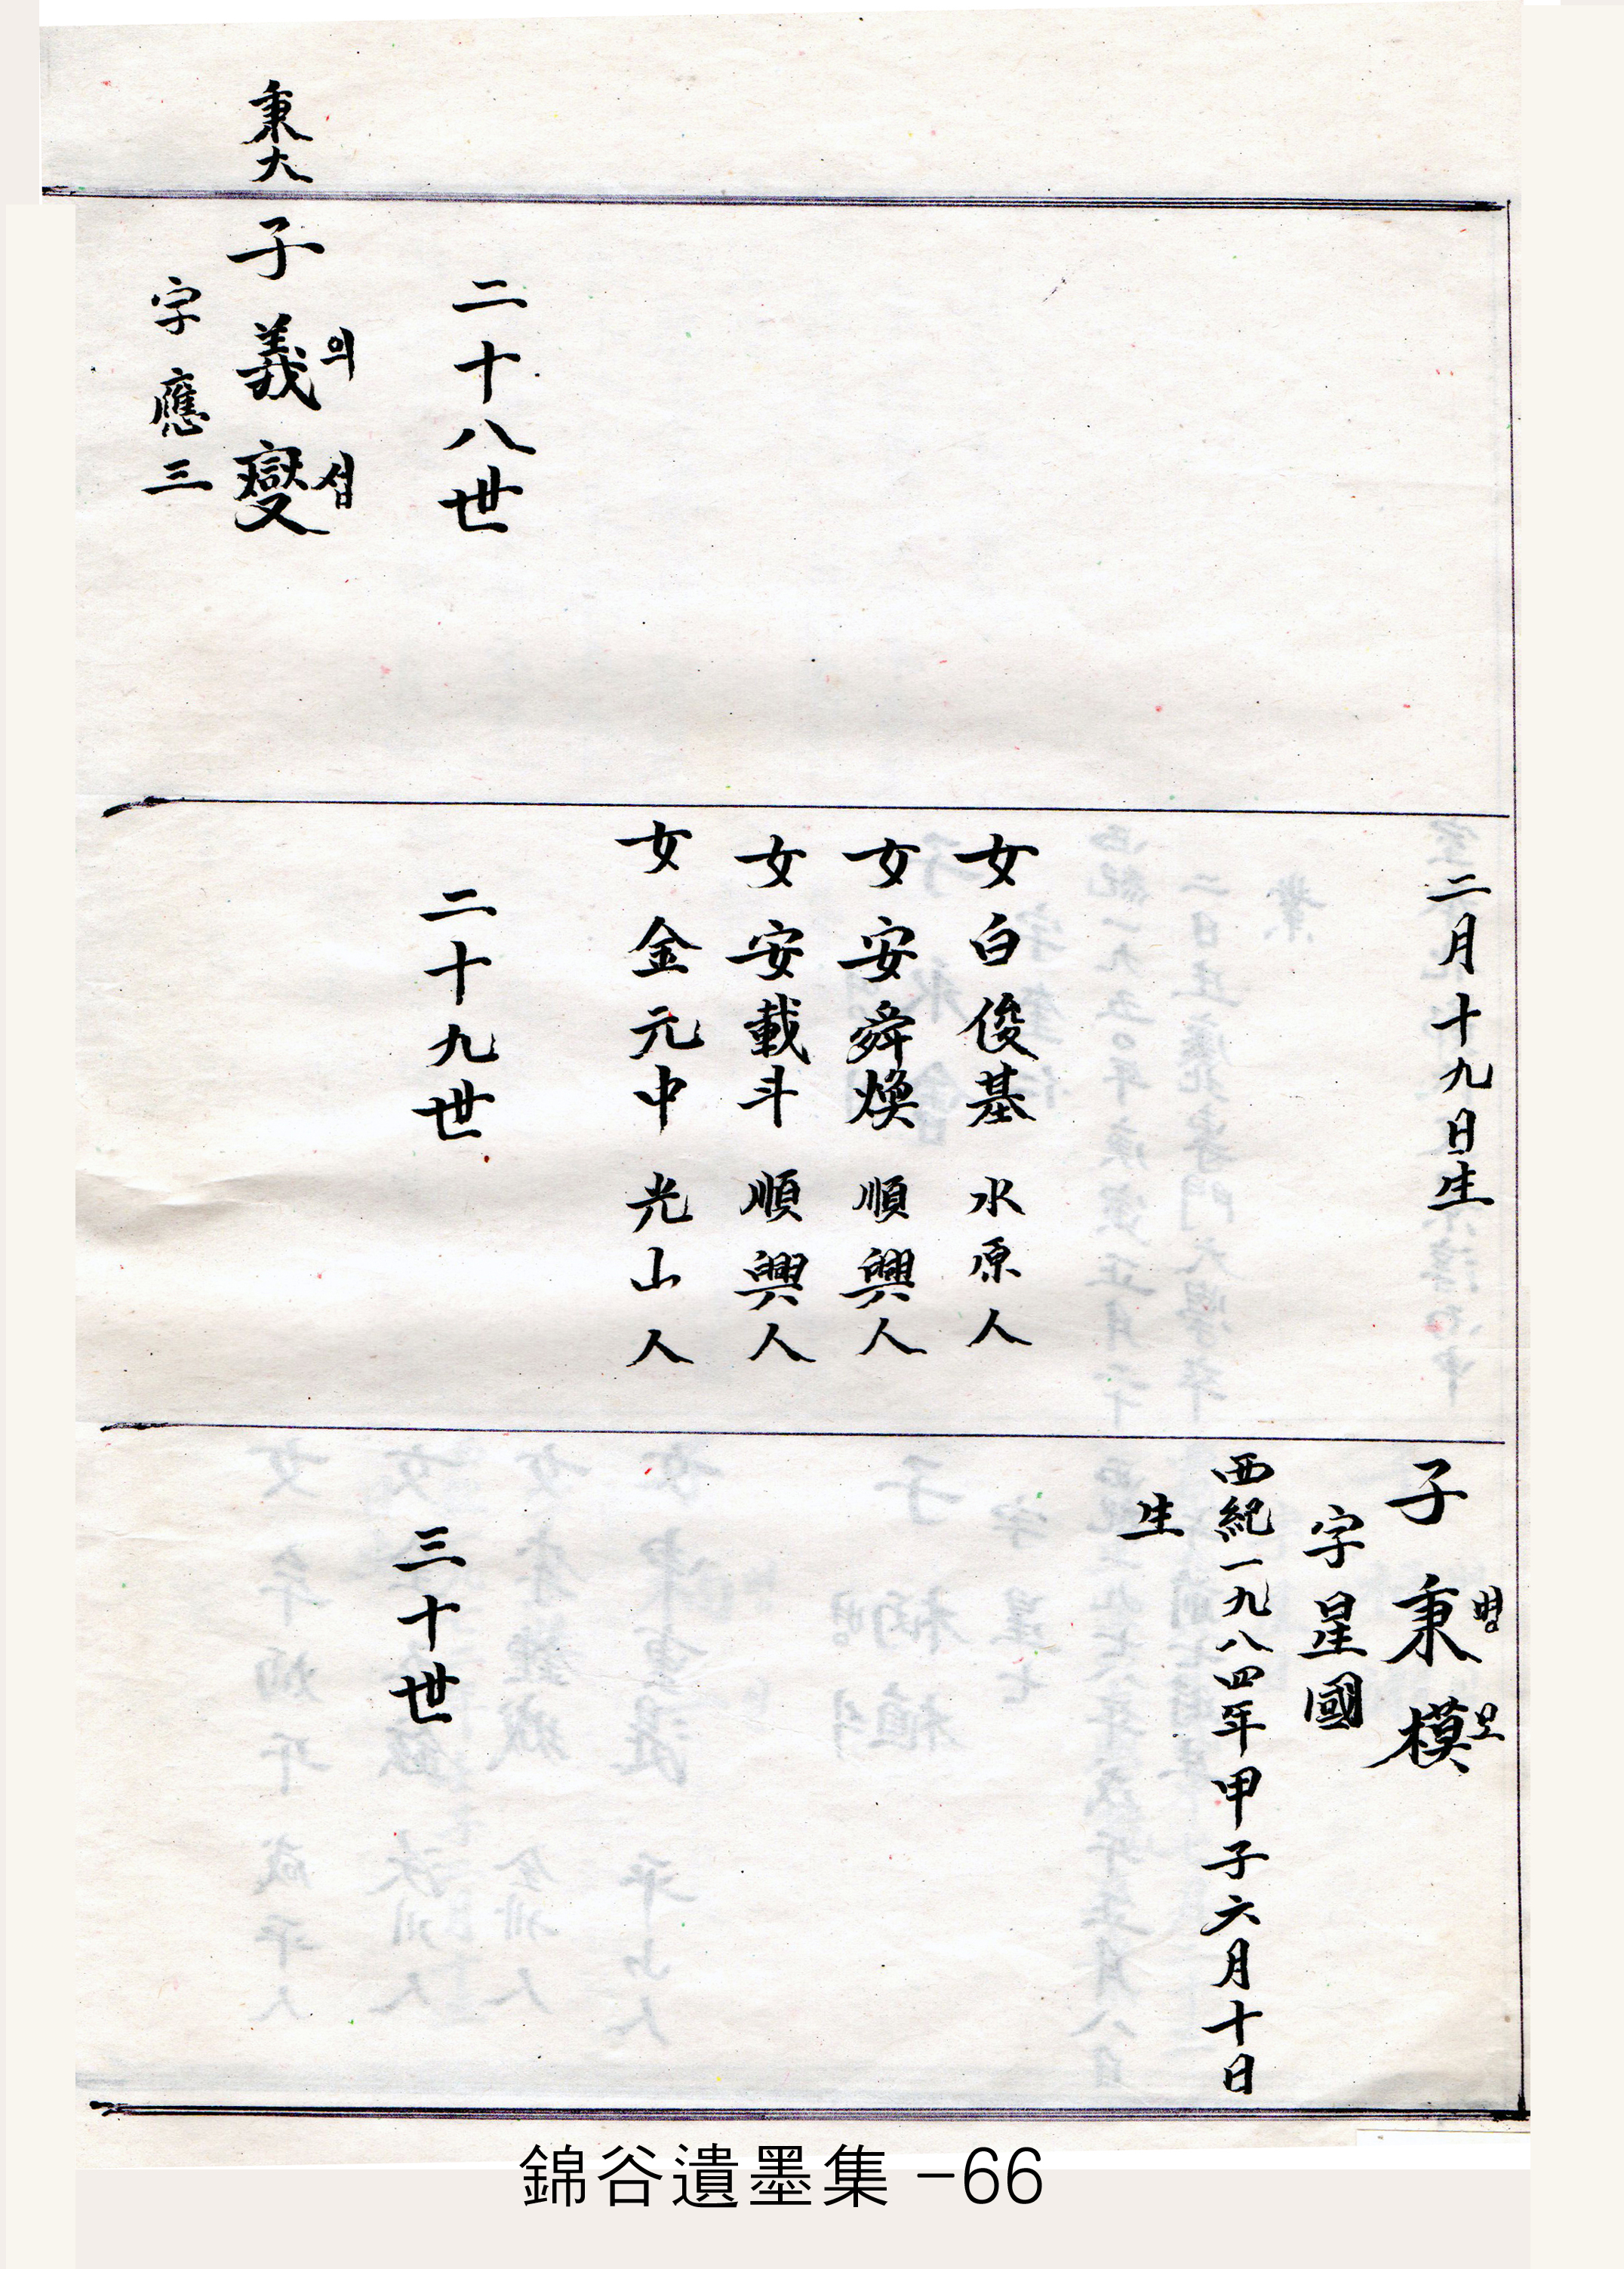 秉大
二十八世
子義燮
의섭
字應三
二月十九日生
女白俊基 水原人
女安舜煥 順興人
女安載斗 順興人
女金元中 光山人
二十九世
子秉模
병모
字星國
西紀一九八四年甲子六月十日
生
三十世
錦谷遺墨集 -66